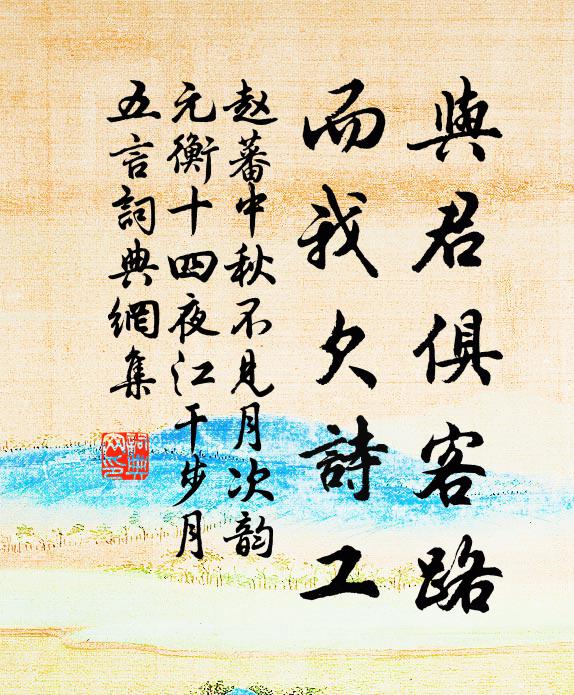 與君俱客路
而我欠詩工
趙蕃中秋不見月次韵
元衡十四夜江干步月
五言詞典網集